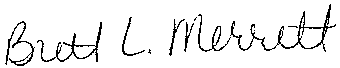 Brett L. Merrett